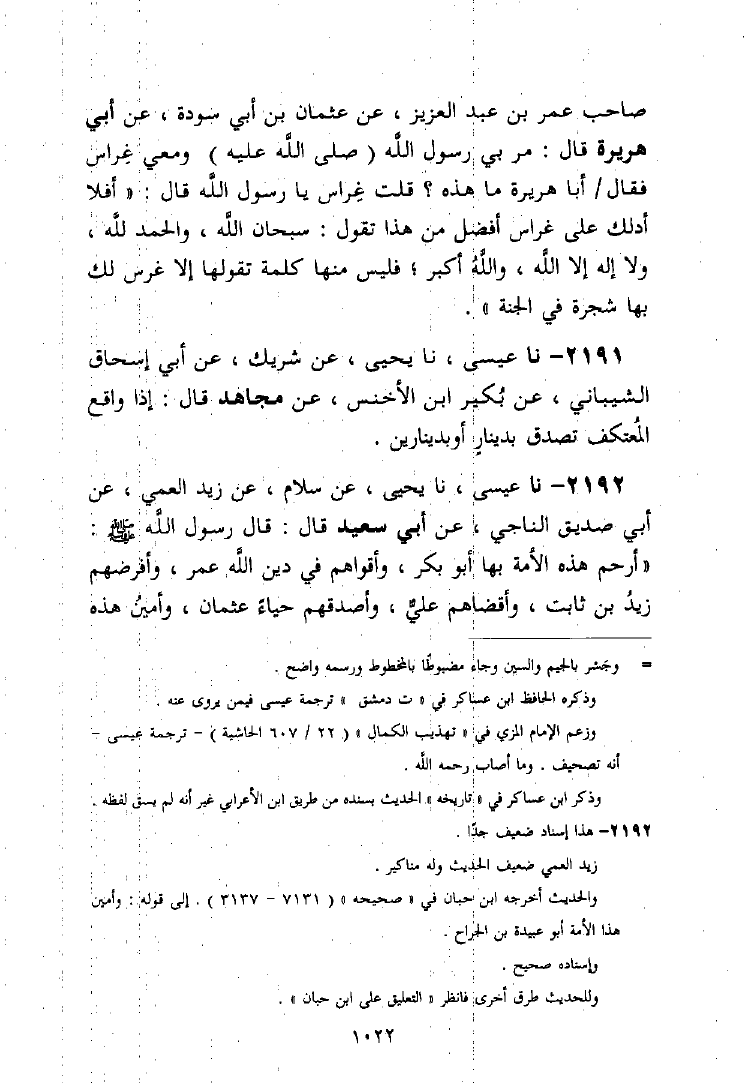 صاحب عمر بن عبد العزيز ، عن عثمان بن أبي سودة ، عن أبي
هريرة قال : مر بي رسول اللَّه ( صلى اللَّه عليه ) ومعي غِراس
فقال / أبا هريرة ما هذه ؟ قلت غِراس يا رسول اللَّه قال : « أفلا
أدلك على غراس أفضل من هذا تقول : سبحان اللَّه ، والحمد للَّه ،
ولا إله إلا اللَّه ، واللَّهُ أكبر ؛ فليس منها كلمة تقولها إلا غرس لك
بها شجرة في الجنة » .
٢١٩١- نا عيسى ، نا يحيى ، عن شريك ، عن أبي إسحاق
الشيباني ، عن بُكير ابن الأخنس ، عن مجاهد قال : إذا واقع
المُعتكف تصدق بدينارٍ أوبدينارين .
٢١٩٢- نا عيسى ، نا يحيى ، عن سلام ، عن زيد العمي ، عن
أبي صديق الناجي ، عن أبي سعيد قال : قال رسول اللَّه ﷺ :
« أرحم هذه الأمة بها أبو بكر ، وأقواهم في دين اللَّه عمر ، وأفرضهم
زيدُ بن ثابت ، وأقضاهم عليٌّ ، وأصدقهم حياءً عثمان ، وأمينُ هذه
= وجشر بالجيم والسين وجاء مضبوطًا بالمخطوط ورسمه واضح .
وذكره الحافظ ابن عساكر في « ت دمشق » ترجمة عيسى فيمن يروى عنه .
وزعم الإمام المزي في « تهذيب الكمال » ( ٢٢ / ٦٠٧ الحاشية ) – ترجمة عيسى –
أنه تصحيف . وما أصاب رحمه اللَّه .
وذكر ابن عساكر في « تاريخه » الحديث بسنده من طريق ابن الأعرابي غير أنه لم يسق لفظه .
٢١٩٢- هذا إسناد ضعيف جدًا .
زيد العمي ضعيف الحديث وله مناكير .
والحديث أخرجه ابن حبان في « صحيحه » ( ٧١٣١ – ٣١٣٧ ) . إلى قوله : وأمين
هذا الأمة أبو عبيدة بن الجراح .
وإسناده صحيح .
وللحديث طرق أخرى فانظر « التعليق على ابن حبان » .
١٠٢٢